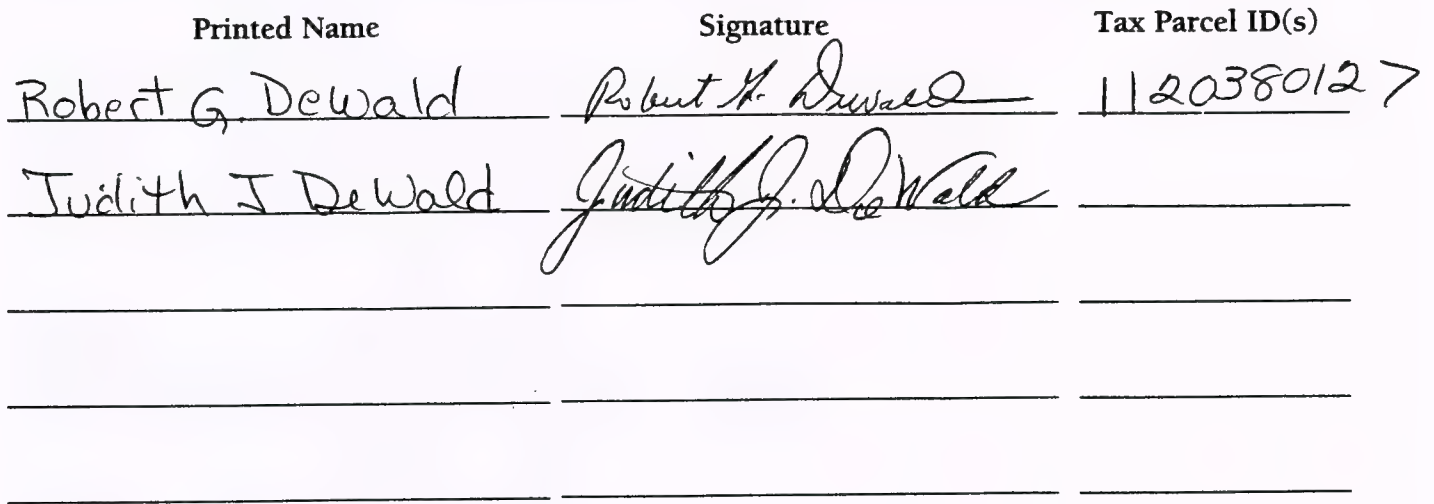 Printed Name Signature Tax Parcel ID(s)
Robert G. DeWald Robert G. DeWald 1120380127
Judith J DeWald Judith J. DeWald